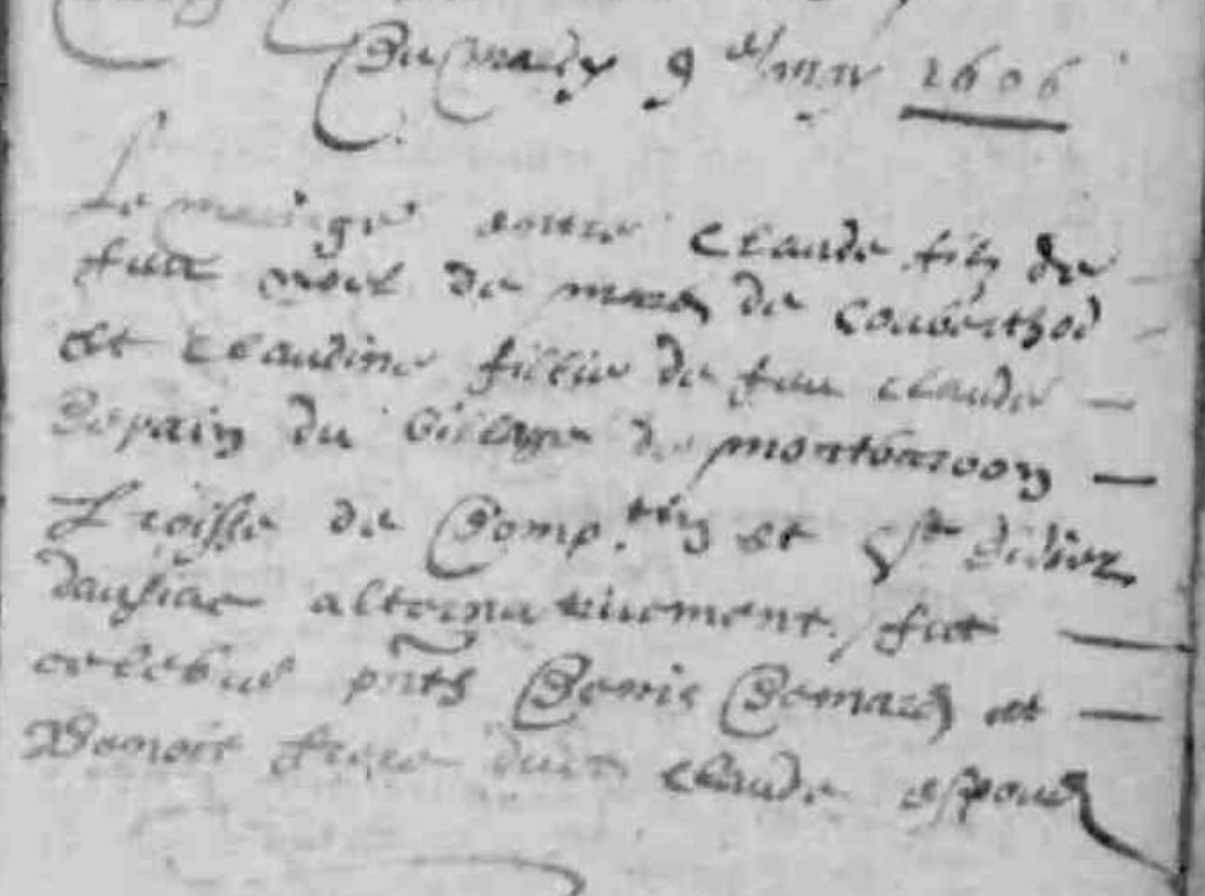 Du mardy 9 may 1606
Le mariage entre Claude filz de
feu noel de mars de Couberthod
et Claudine fillie de feu Claude
du village de montbaroon
de et St didier
daussiac alternativement, fut
celebré pnts Denis Demars et
Benoit frere dudit Claude espoux